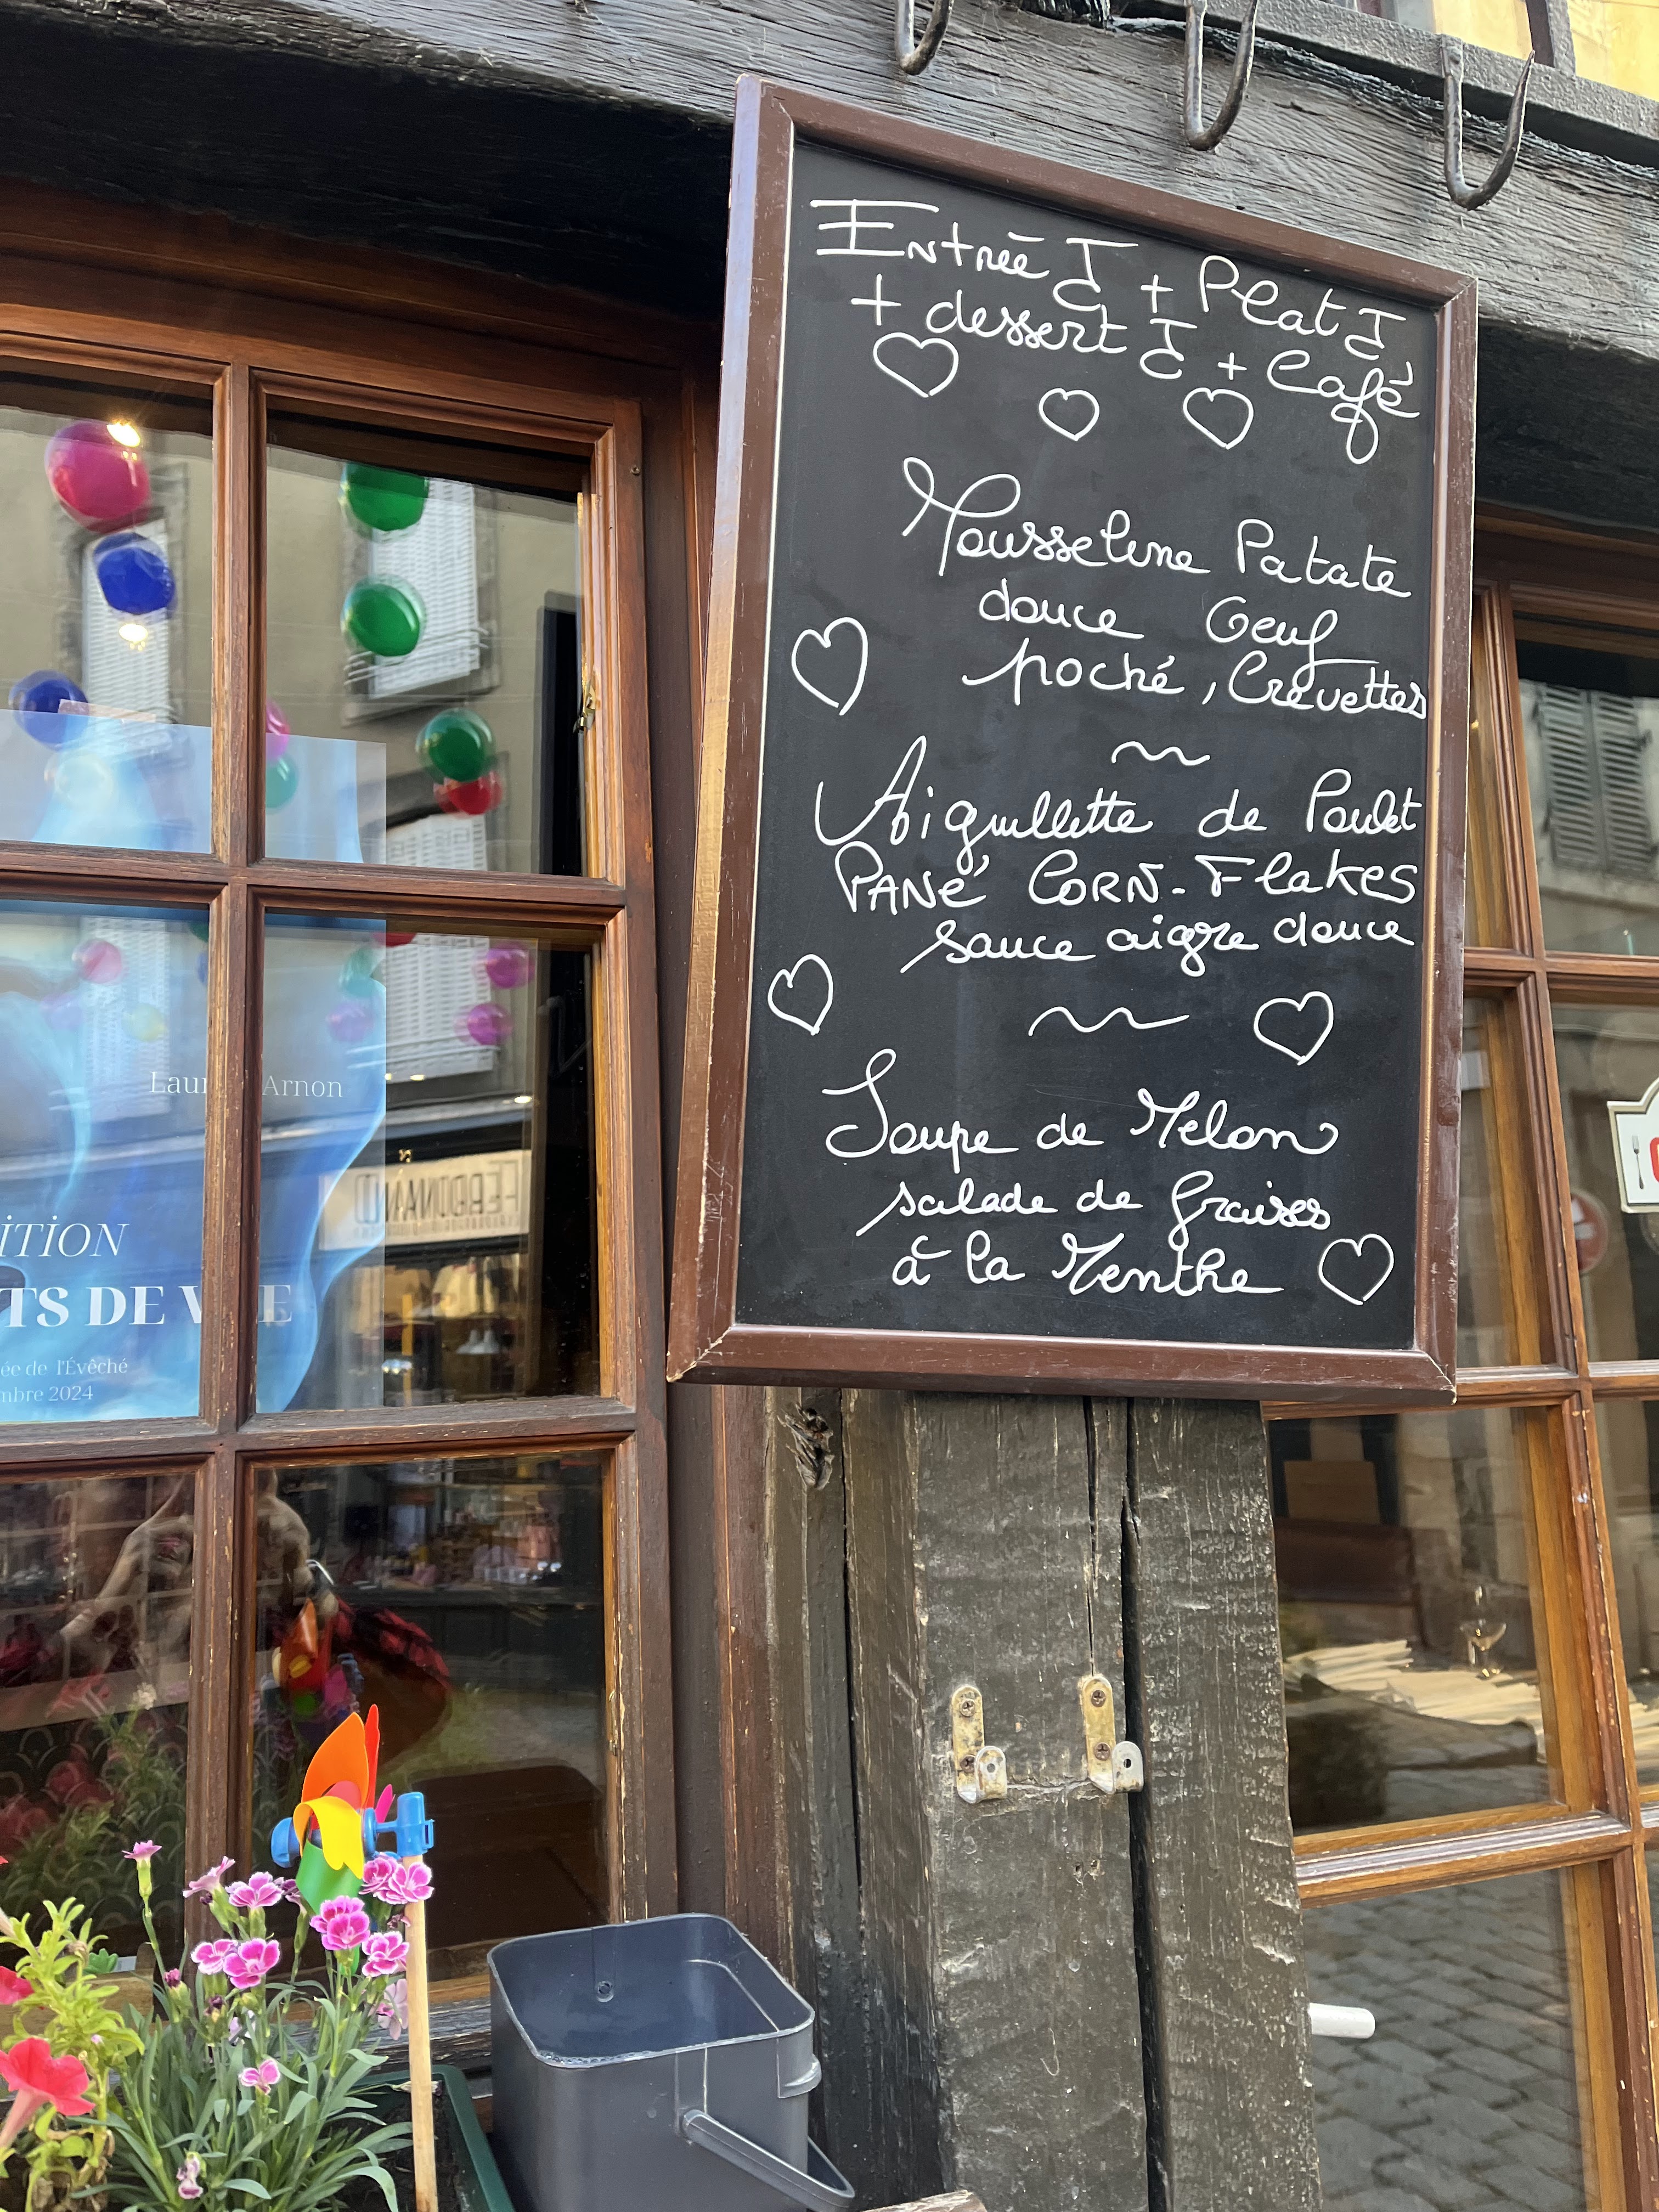 Entrée J + Plat J
+ dessert J + Café
Mousseline Patate
douce Oeuf
poché, Crevettes
Aiguillette de Poulet
PANÉ CORN-Flakes
sauce aigre douce
Soupe de Melon
salade de fraises
à la Menthe
Arnon
TS DE VIE
l'Évêché
2024
FERDINAND